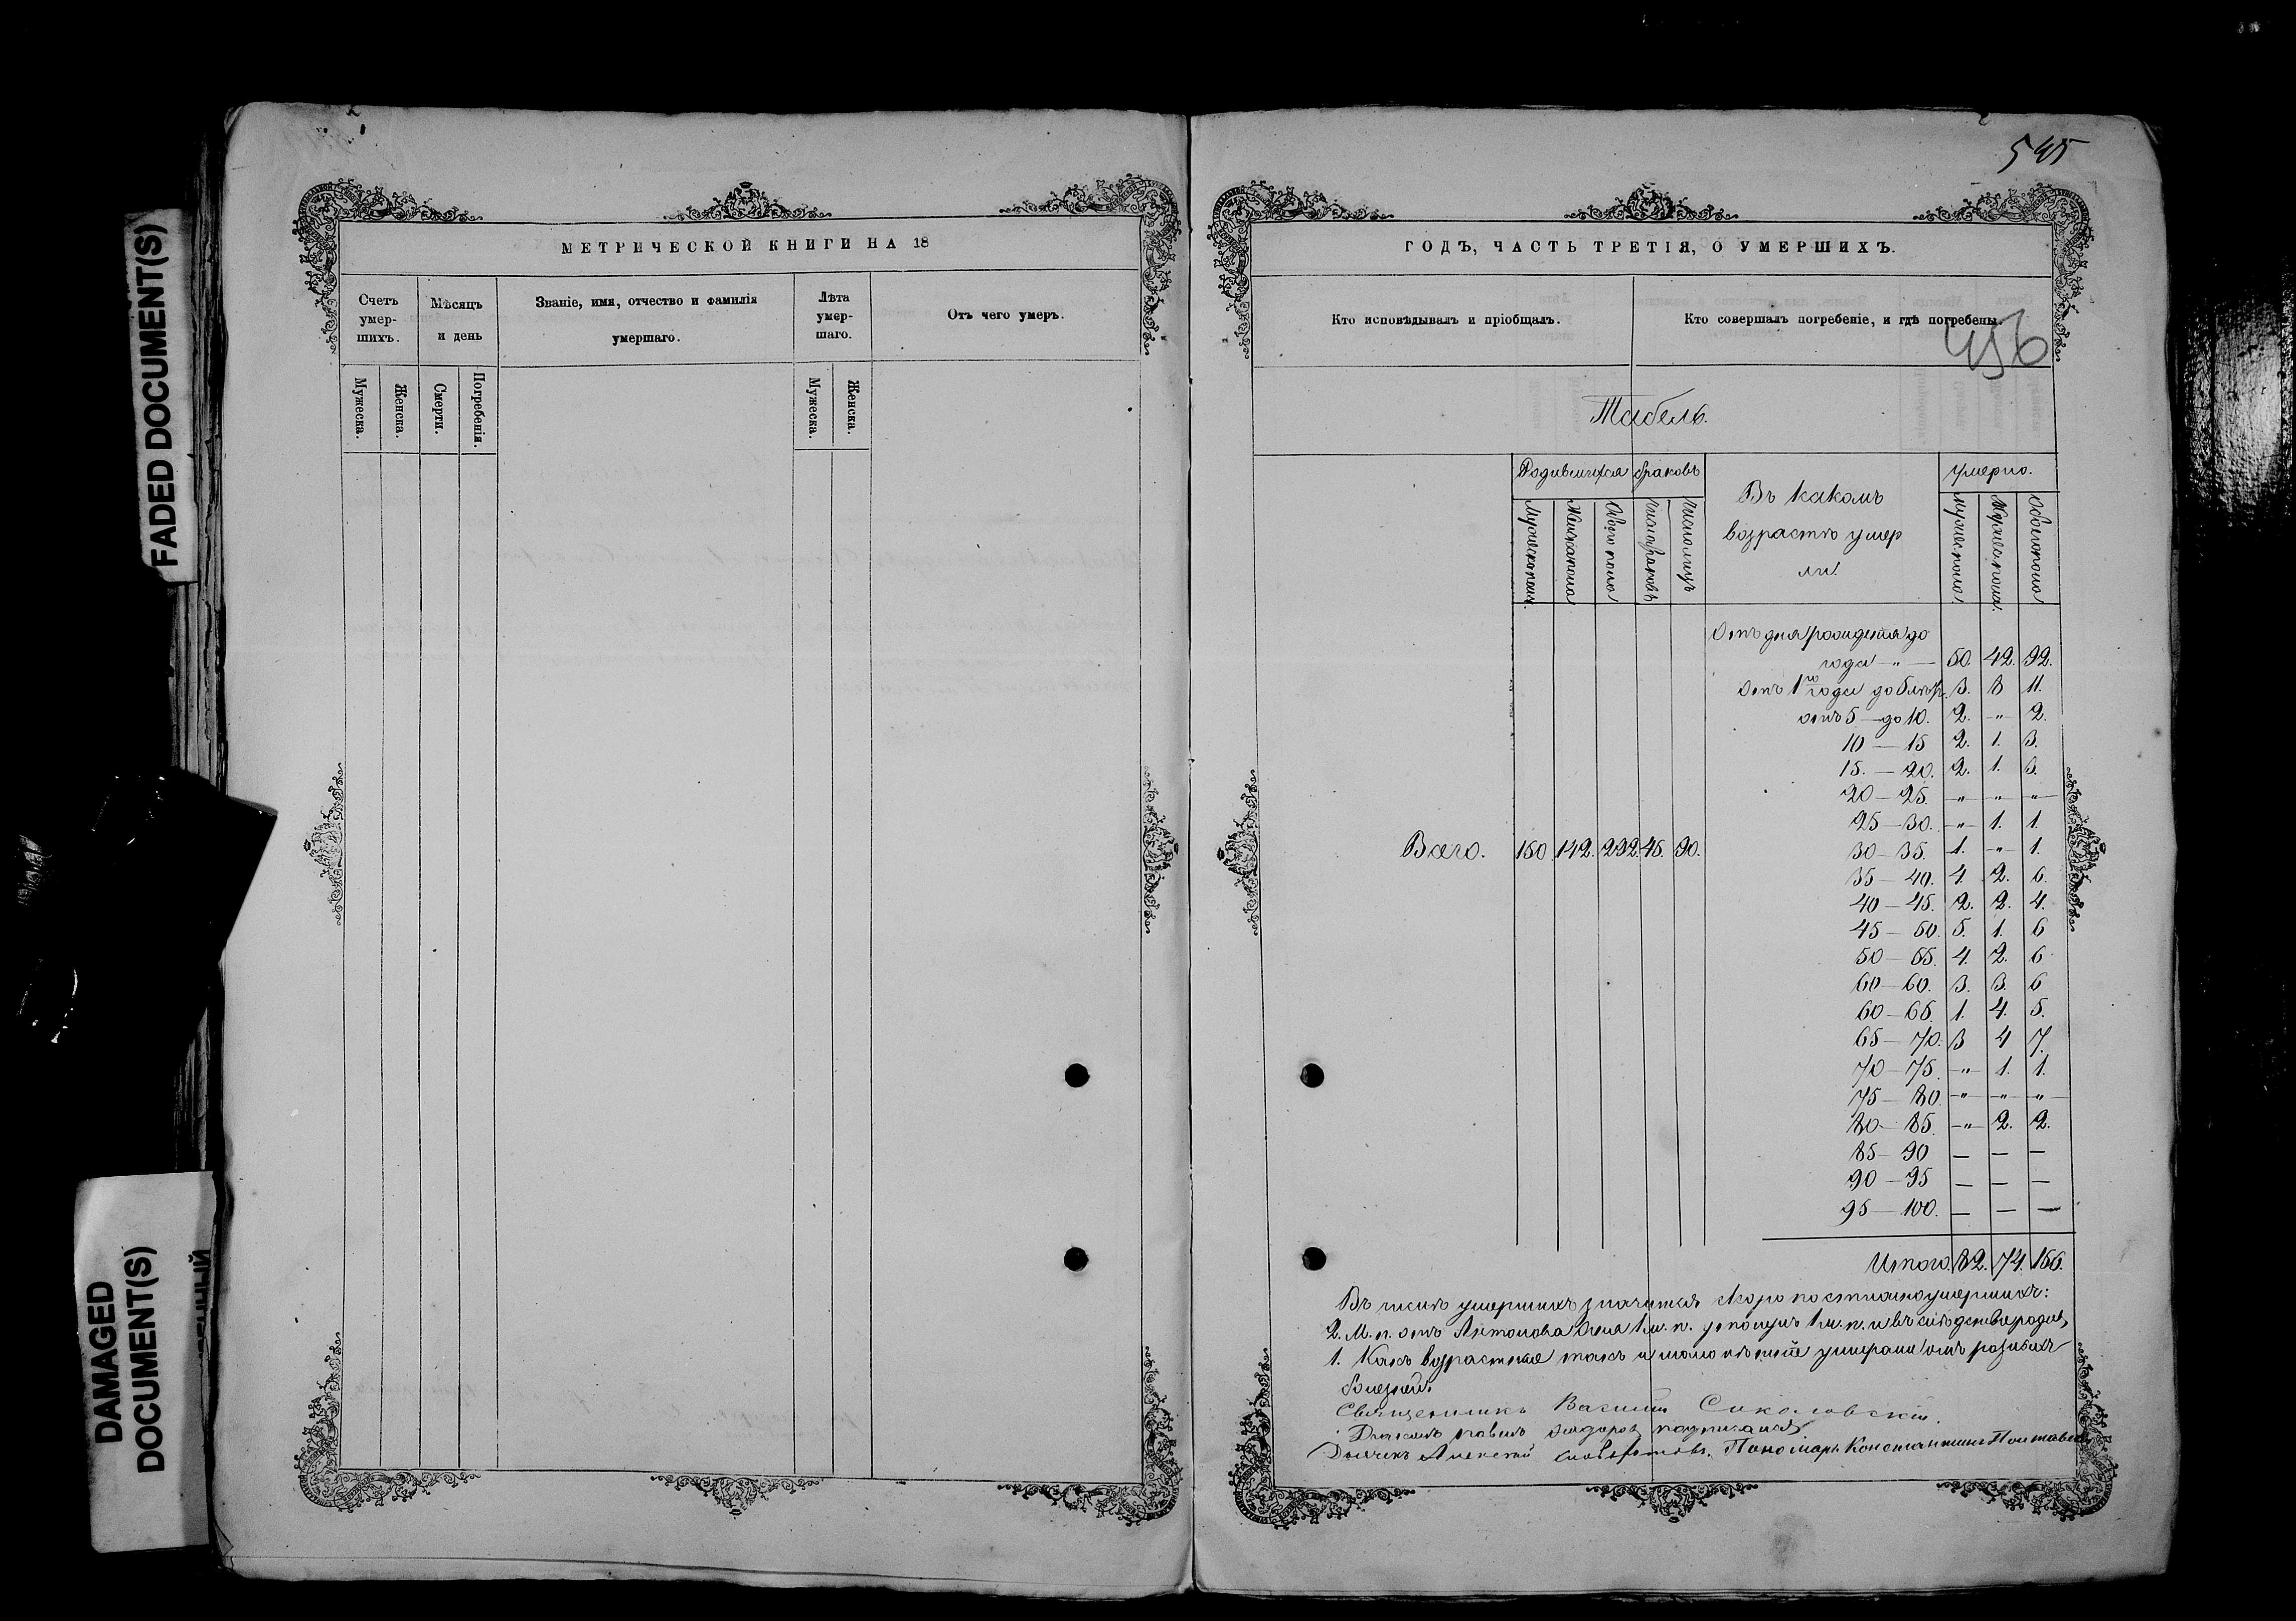 FADED DOCUMENT(S)
DAMAGED
DOCUMENT(S)
МЕТРИЧЕСКОЙ КНИГИ НА 18
Счетъ умер- шихъ.
Мѣсяцъ и день
Званіе, имя, отчество и фамилія умершаго.
Лѣта умер- шаго.
Отъ чего умеръ.
Мужеска.
Женска.
Смерти.
Погребенія.
Мужеска.
Женска.
545
ГОДЪ, ЧАСТЬ ТРЕТІЯ, О УМЕРШИХЪ.
Кто исповѣдывалъ и пріобщалъ.
Кто совершалъ погребеніе, и гдѣ погребены.
456
Табель.
Родившихся браковъ
Въ какомъ
возрастѣ умер
ли.
умерло.
Мужеска пола
Женска пола
Обоего пола
Число браковъ
Число лицъ
Обоего пола
Отъ дня рожденія до
года " — 50. 42. 92.
Отъ 1го года до 5 3. 8 11.
отъ 5 — до 10. 2. " 2.
10 — 15 2. 1. 3.
15. — 20. 2. 1. 3.
20 — 25. " " "
25 — 30. " 1. 1.
Всего. 150. 142. 292. 45. 90.
30 — 35. 1. " 1.
35 — 40. 4. 2. 6.
40 — 45. 2. 2. 4.
45 — 50. 5. 1. 6
50 — 55. 4. 2. 6
60 — 60. 3. 3. 6
60 — 65. 1. 4. 5.
65 — 70. 3 4 7.
70 — 75. " 1. 1.
75 — 80. " " "
80 — 85. " 2. 2.
85 — 90 — — —
90 — 95 — — —
95 — 100. — — —
Итого 82. 74. 156.
Въ числѣ умершихъ значится скоропостижно умершихъ:
2. М. п. отъ Антонова Огня 1 м. п. 1 м. п. и въ
1. Какъ возрастные такъ и малолѣтніе умирали отъ разныхъ
болезней.
Священникъ Василій Соколовскій.
Дьячекъ Алексей Пономарь Константинъ